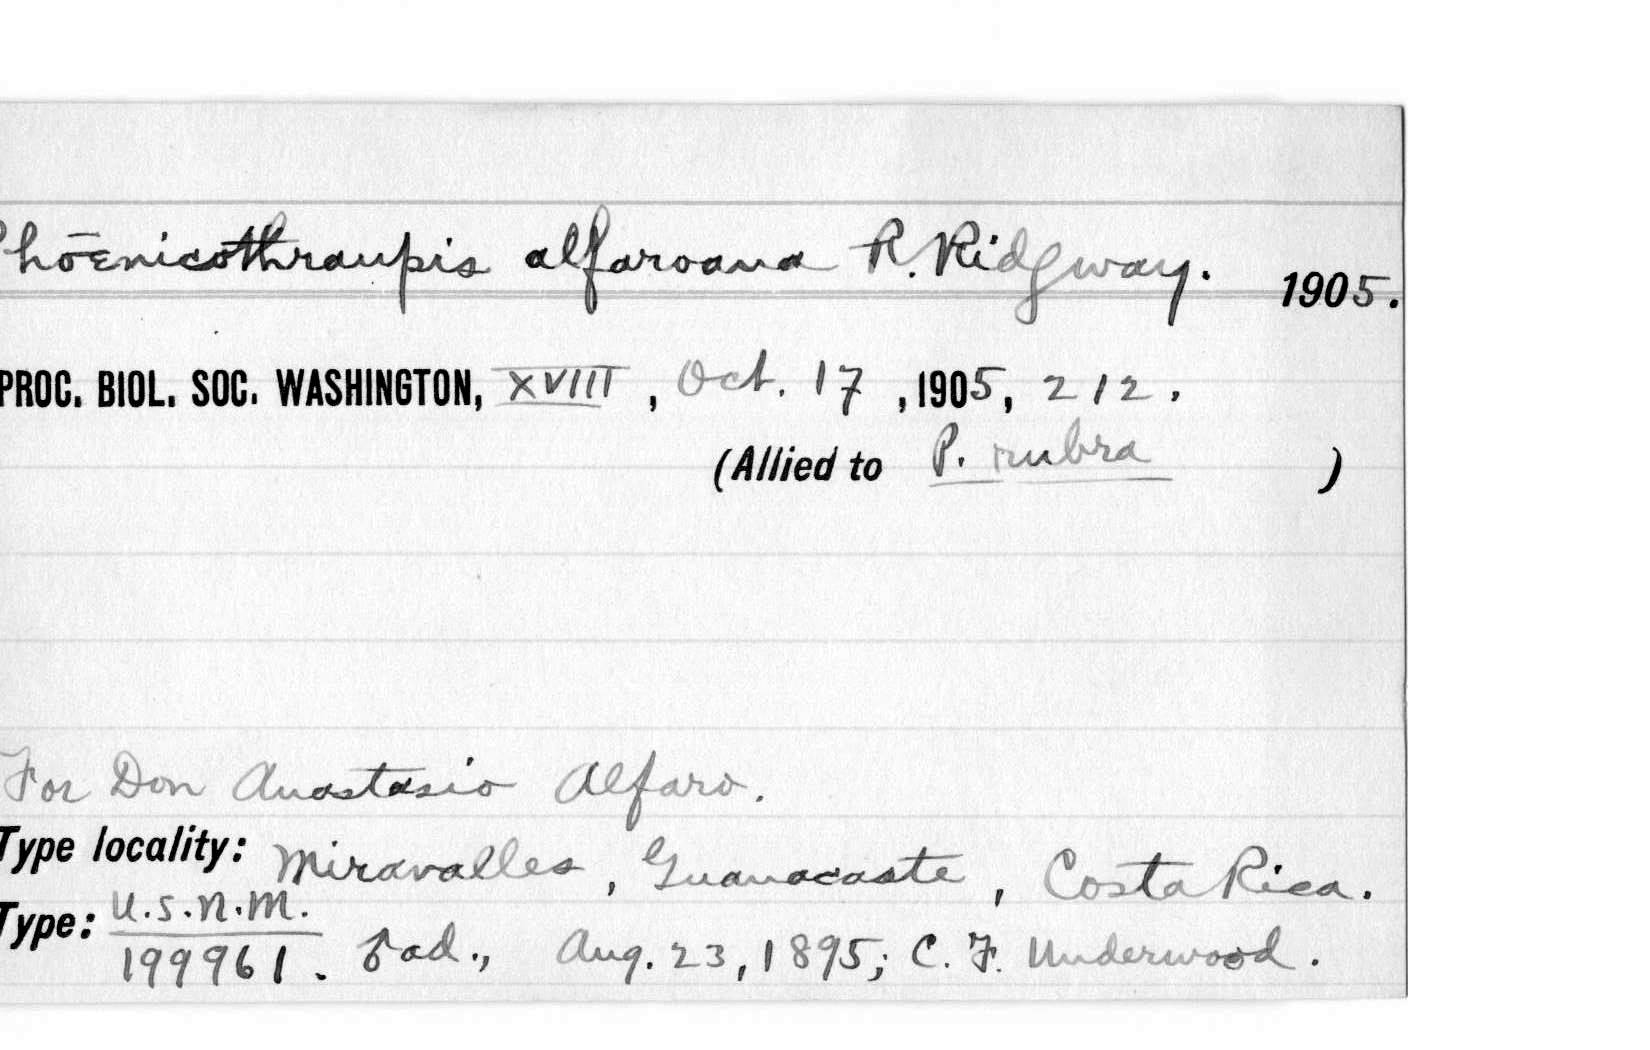 Phoenicothraupis alfaroana R. Ridgway. 1905.
PROC. BIOL. SOC. WASHINGTON, XVIII, Oct. 17, 1905, 212.
(Allied to P. rubra )
For Don Anastasio Alfaro.
Type locality: Miravalles, Guanacaste, Costa Rica.
Type: U.S.N.M.
199961. ♂ ad., Aug. 23, 1895; C. F. Underwood.